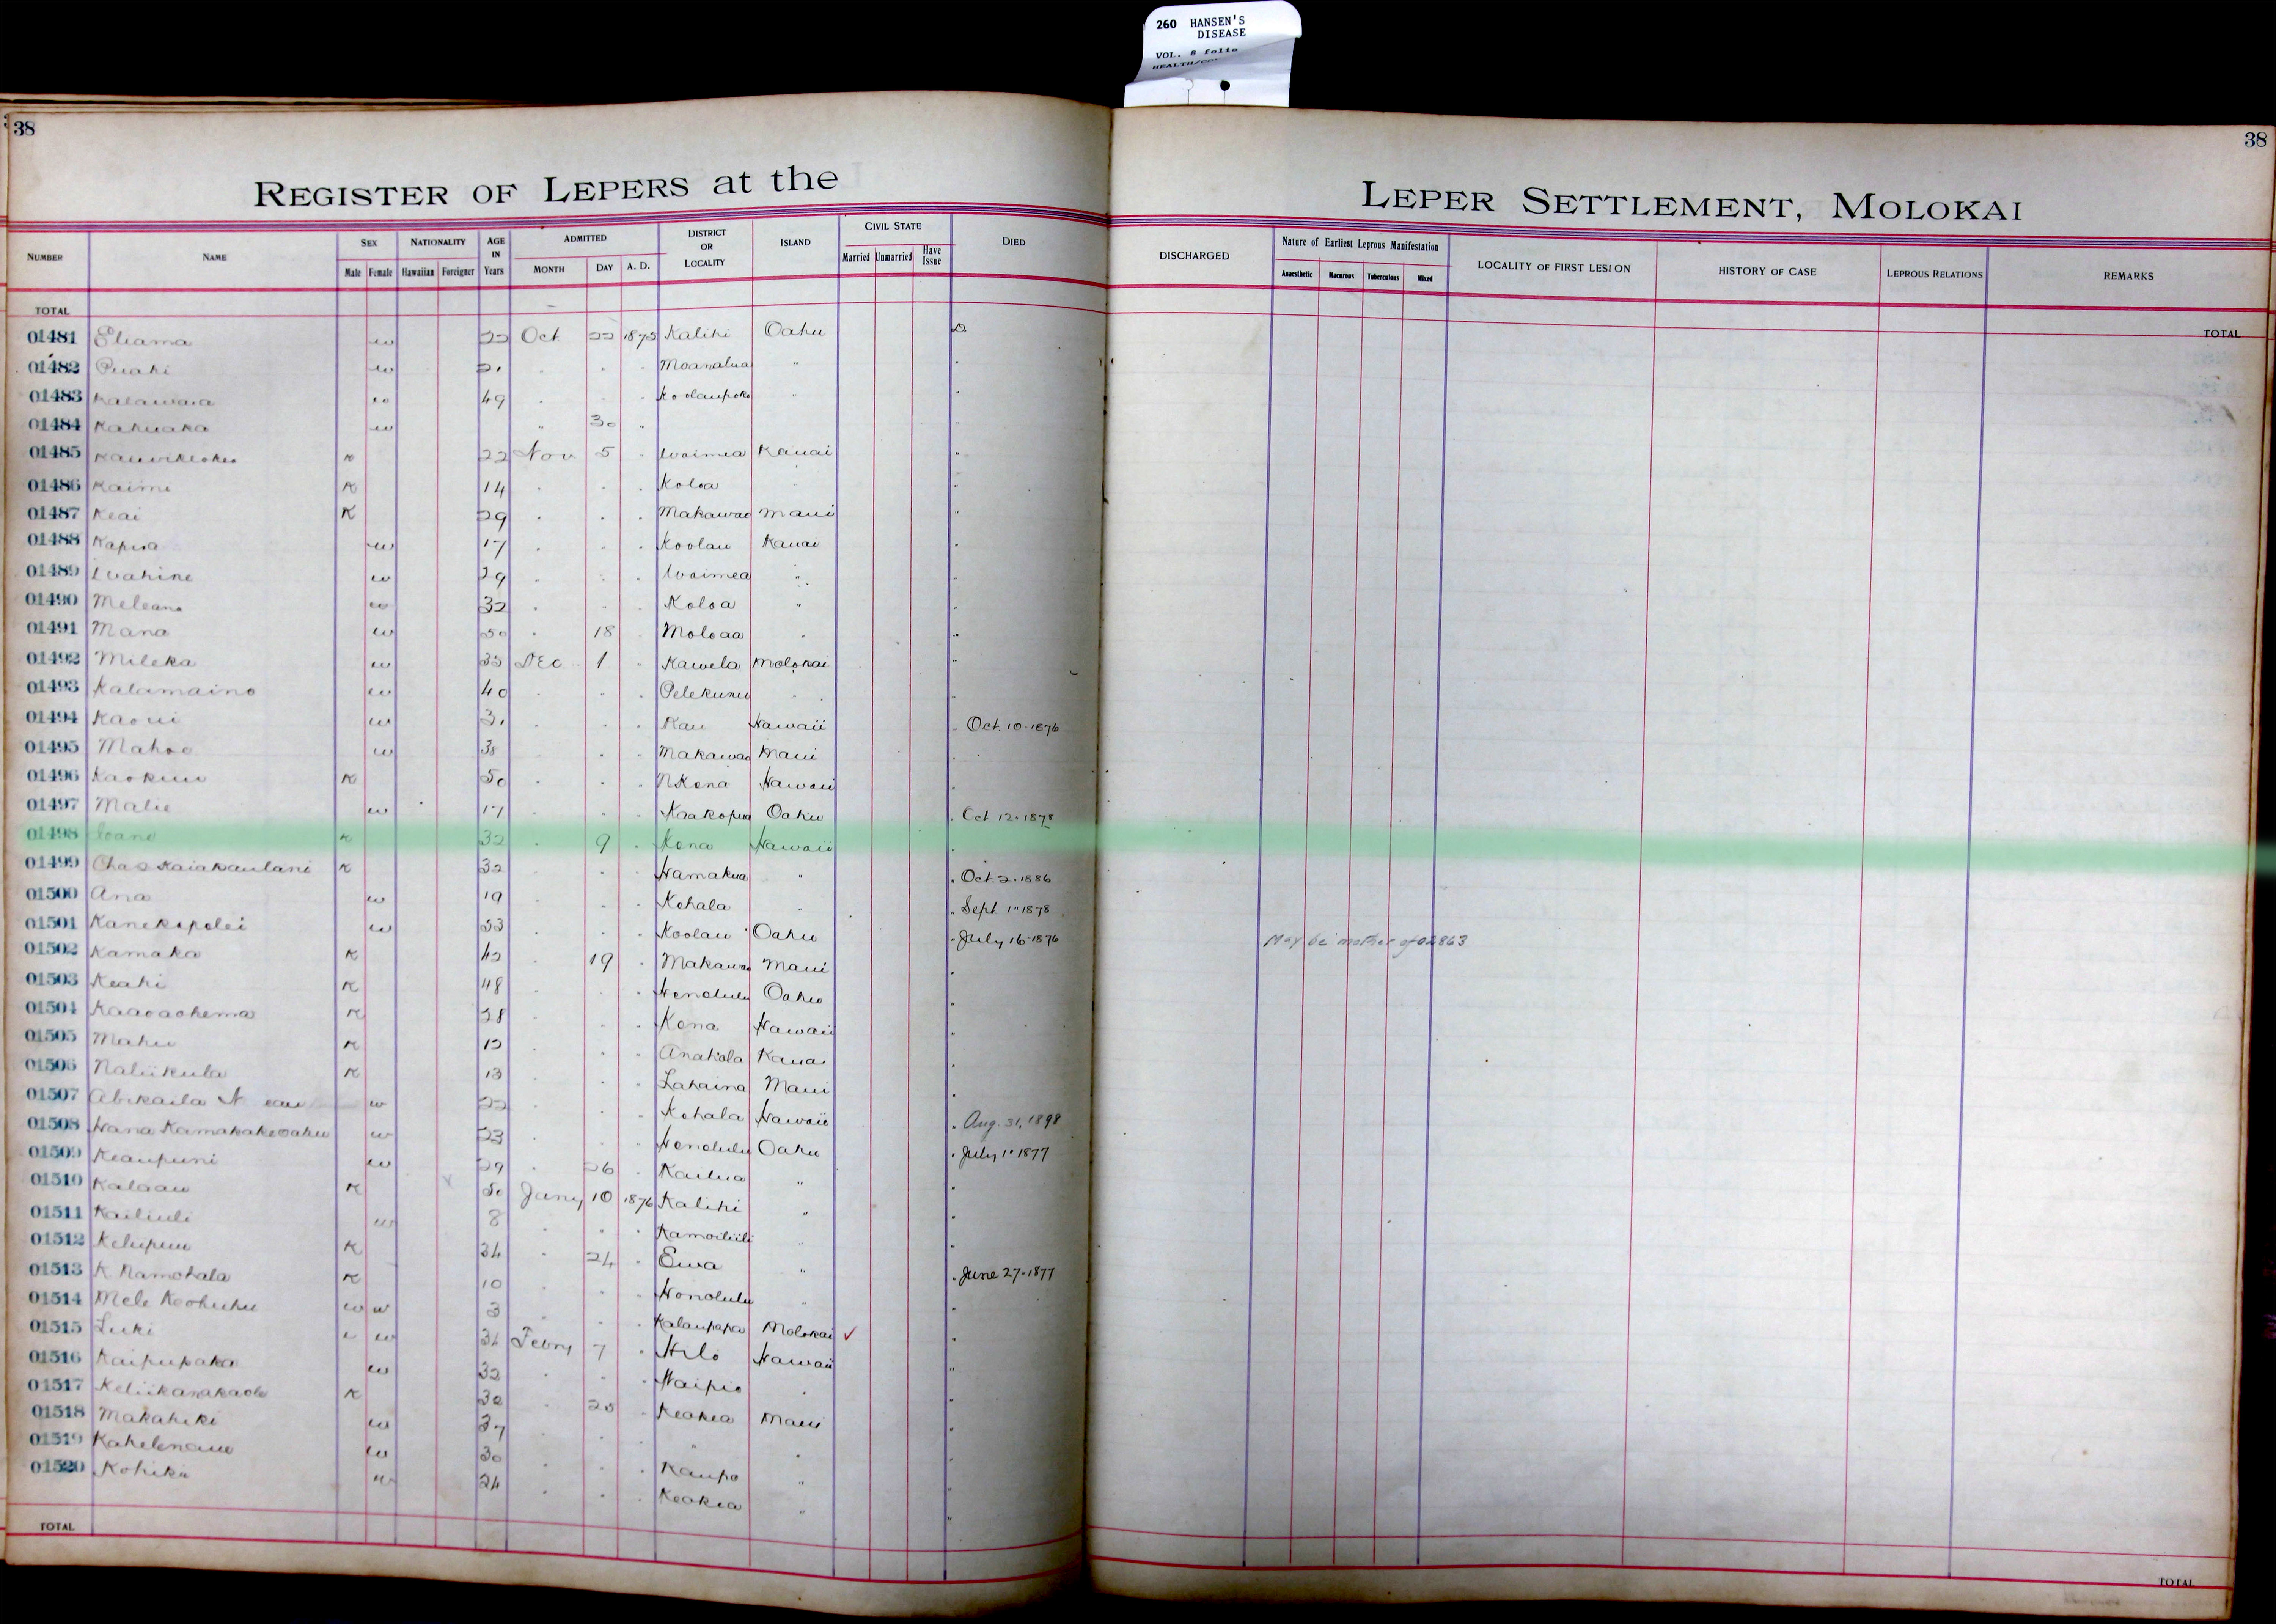 260 HANSEN'S
DISEASE
VOL. 8 folio
38
38
REGISTER OF LEPERS at the LEPER SETTLEMENT, MOLOKAI
NUMBER NAME SEX Male Female NATIONALITY Hawaiian Foreigner AGE IN Years ADMITTED MONTH DAY A. D. DISTRICT OR LOCALITY ISLAND CIVIL STATE Married Unmarried Have Issue DIED DISCHARGED Nature of Earliest Leprous Manifestation Anaesthetic Macurous Tuberculous Mixed LOCALITY OF FIRST LESION HISTORY OF CASE LEPROUS RELATIONS REMARKS
TOTAL TOTAL
01481 Eliama w 22 Oct 22 1875 Kalihi Oahu D
01482 Puahi w " " " Moanalua " "
01483 w 49 " " " Koolaupoko " "
01484 Kahuaka w " 30 " "
01485 K 22 Nov 5 " Waimea Kauai "
01486 Kaimi K 14 " " " Koloa "
01487 Keai K 29 " " " Makawao Maui "
01488 w 17 " " " Koolau Kauai "
01489 Wahine w 29 " " " Waimea " "
01490 Meleana w 32 " " " Koloa " "
01491 Mana w 50 " 18 Moloaa " "
01492 Mileka w 35 Dec 1 " Kawela Molokai "
01493 Kalamaino w 40 " " " Pelekunu " "
01494 w 31 " " " Kau Hawaii " Oct. 10-1876
01495 Mahoe w 38 " " Makawao Maui "
01496 Kaokuu K 50 " " " N Kona Hawaii "
01497 Malie w 17 " " " Kaakopua Oahu " Oct 12-1878
01498 Ioane K 32 " 9 " Kona Hawaii "
01499 Chas Kaiakaulani K 32 " " " Hamakua " " Oct. 2-1886
01500 Ana w 19 " " " Kohala " " Sept 1-1878
01501 Kanekapolei w 53 " " " Koolau Oahu " July 16-1876 May be mother of 02863
01502 Kamaka K 42 " 19 " Makawao Maui "
01503 Keahi K 48 " " " Honolulu Oahu "
01504 K 28 " " " Kona Hawaii "
01505 Mahu K 12 " " " Anahola Kauai "
01506 Naliikula K 13 " " " Lahaina Maui "
01507 Abikaila w 22 " " " Kohala Hawaii " Aug. 31, 1898
01508 Hana Kamakakeoahu w 23 " " " Honolulu Oahu " July 1-1877
01509 Keaupuni w 29 " 26 " Kailua " "
01510 Kalaau K 50 Jany 10 1876 Kalihi " "
01511 Kailiuli w 8 " " " Kamoiliili " "
01512 Kelupuu K 34 " 24 " Ewa " " June 27-1877
01513 K Namohala K 10 " " " Honolulu " "
01514 Mele Keohuhu w w 3 " " " Kalaupapa Molokai ✓ "
01515 Luki w 34 Febry 7 " Hilo Hawaii "
01516 Kaipupaka w 32 " " " Waipio " "
01517 Keliikanakaole K 30 " 25 " Keokea Maui "
01518 Makahiki w 37 " " " " "
01519 w 30 " " " Kaupo " "
01520 w 24 " " " Keokea " "
TOTAL TOTAL